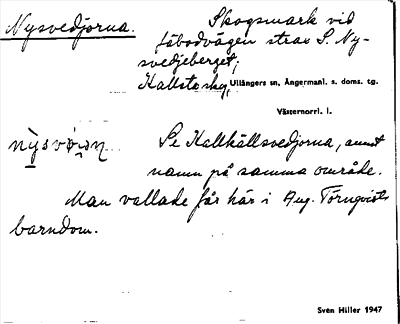 Nysvedjorna.
Skogsmark vid
fäbodvägen strax S. Ny-
svedjeberget;
Kallsta skg, Ullångers sn, Ångermanl. s. doms. tg.
Västernorrl. l.
Se Kallkällsvedjorna, annat
namn på samma område.
Man vallade får här i Aug. Törnqvists
barndom.
Sven Hiller 1947